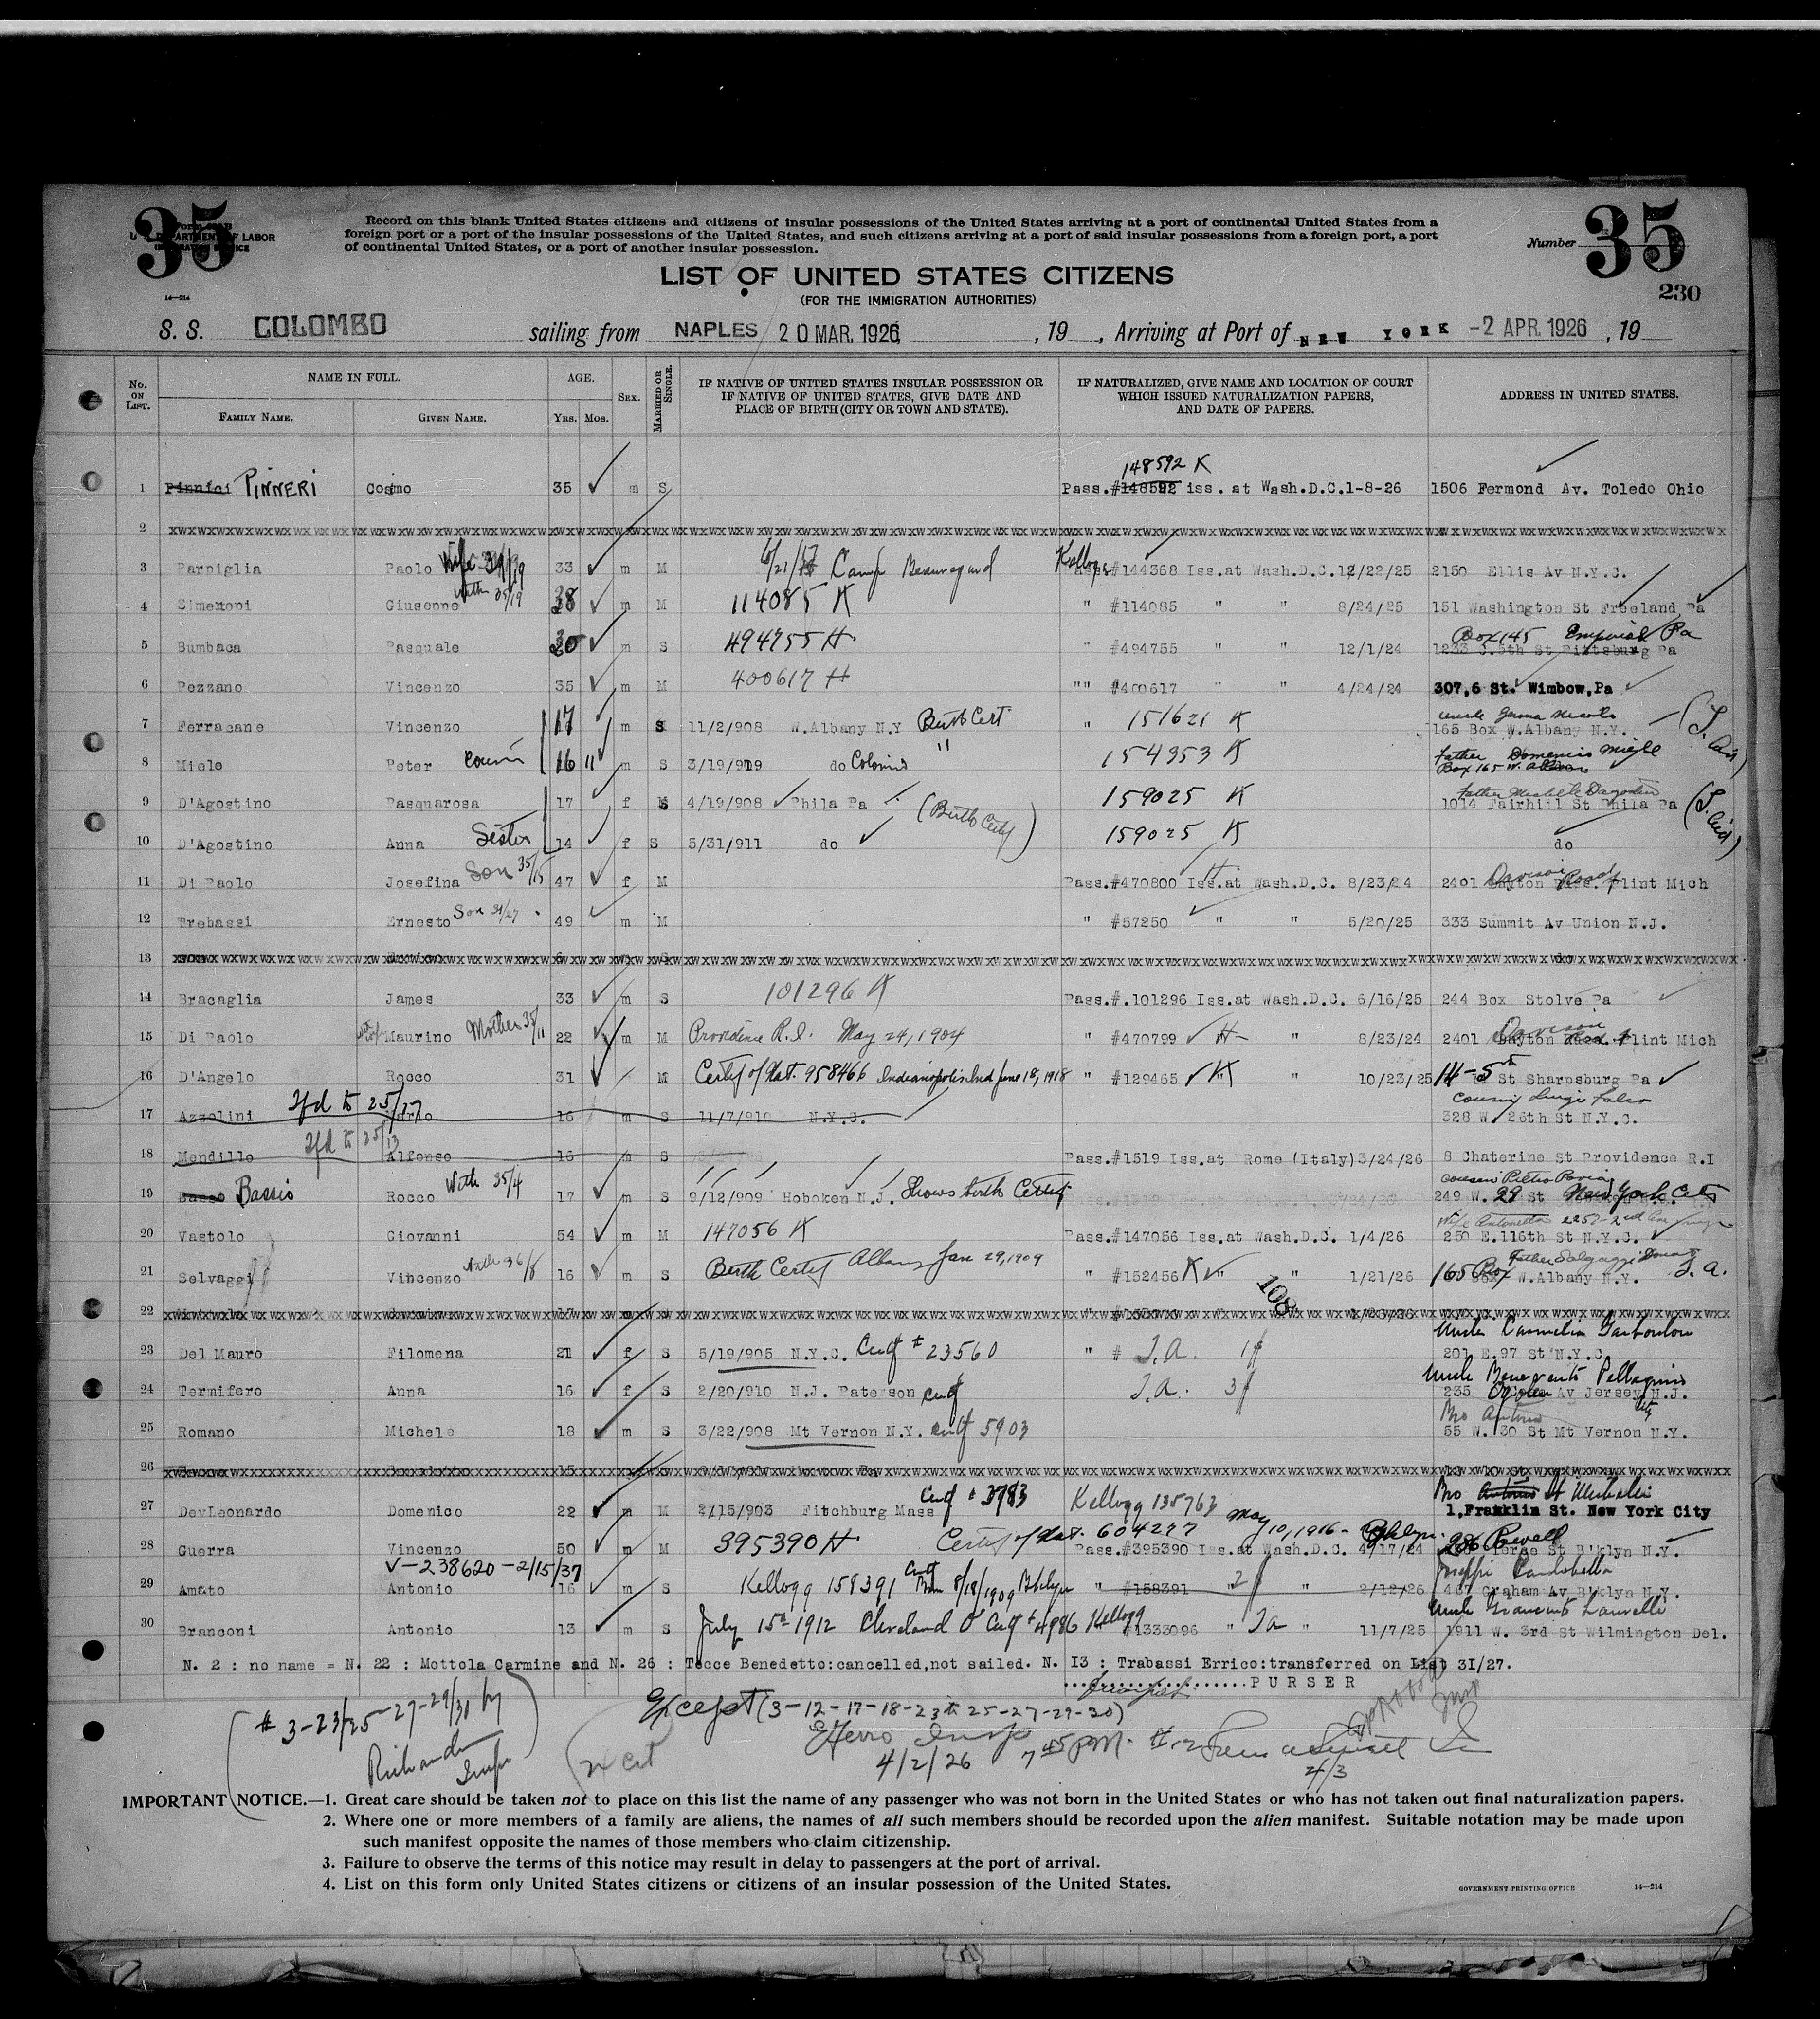 35
35
Form 630 B
U. S. DEPARTMENT OF LABOR
IMMIGRATION SERVICE
14—214
Record on this blank United States citizens and citizens of insular possessions of the United States arriving at a port of continental United States from a
foreign port or a port of the insular possessions of the United States, and such citizens arriving at a port of said insular possessions from a foreign port, a port
of continental United States, or a port of another insular possession.
Number
230
LIST OF UNITED STATES CITIZENS
(FOR THE IMMIGRATION AUTHORITIES)
S. S. COLOMBO sailing from NAPLES 20 MAR. 1926, 19 , Arriving at Port of NEW YORK -2 APR. 1926 , 19
No. ON LIST. NAME IN FULL. FAMILY NAME. GIVEN NAME. AGE. YRS. MOS. SEX. MARRIED OR SINGLE. IF NATIVE OF UNITED STATES INSULAR POSSESSION OR IF NATIVE OF UNITED STATES, GIVE DATE AND PLACE OF BIRTH (CITY OR TOWN AND STATE). IF NATURALIZED, GIVE NAME AND LOCATION OF COURT WHICH ISSUED NATURALIZATION PAPERS, AND DATE OF PAPERS. ADDRESS IN UNITED STATES.
148592 K
1 Pinnici PINNERI Cosimo 35 m S Pass.#148592 iss. at Wash.D.C.1-8-26 1506 Fermond Av. Toledo Ohio
2
3 Parpiglia Paolo Wife 33 m M Camp Beauregard Kellogg Pass.#144368 Iss.at Wash.D.C.12/22/25 2150 Ellis Av N.Y.C.
4 Simeroni Giuseppe with 35/19 38 m M 114085 K " #114085 " " 8/24/25 151 Washington St Freeland Pa
5 Bumbaca Pasquale 30 m S 494755 H " #494755 " " 12/1/24 Box 145 Pa
6 Pezzano Vincenzo 35 m M 400617 H "" #400617 " " 4/24/24 307,6 St. Wimbow,Pa
7 Ferracane Vincenzo 17 m S 11/2/908 W.Albany N.Y Birth Cert " 151621 K uncle 165 Box W.Albany N.Y.
8 Miele Peter cousin 16 11 m S 3/19/909 do Colonis " 154353 K Father Domenico Box 165 W.
9 D'Agostino Pasquarosa 17 f S 4/19/908 Phila Pa (Birth Certf) 159025 K Father Michele 1014 Fairhill St Phila Pa
10 D'Agostino Anna Sister 14 f S 5/31/911 do 159025 K do
11 Di Paolo Josefina Son 35/15 47 f M Pass.#470800 Iss.at Wash.D.C. 8/23/24 2401 Davison Road Flint Mich
12 Trebassi Ernesto Son 31/27 49 m M " #57250 " " 5/20/25 333 Summit Av Union N.J.
13
14 Bracaglia James 33 m S 101296 K Pass.#.101296 Iss.at Wash.D.C. 6/16/25 244 Box Stolve Pa
15 Di Paolo Maurino Mother 35/11 22 m M Providence R.I. May 24, 1904 " #470799 H " 8/23/24 2401 Davison Flint Mich
16 D'Angelo Rocco 31 M Certf of Nat. 958466 Indianapolis Ind June 18, 1918 " #129465 K " 10/23/25 14-5th St Sharpsburg Pa
17 Azzolini Tfd to 25/17 16 m S 11/7/910 N.Y.C. cousin Luigi Falco 328 W. 26th St N.Y.C.
18 Mendillo Tfd to 25/13 Alfonso 16 m S Pass.#1519 Iss.at Rome (Italy)3/24/26 8 Chaterine St Providence R.I
19 Basso Bassio Rocco With 35/4 17 m S 9/12/909 Hoboken N.J. Shows birth Certif cousin Pietro 249 W. 29 St New York City
20 Vastolo Giovanni 54 m M 147056 K Pass.#147056 Iss.at Wash.D.C. 1/4/26 Wife Antonetta 2252-2nd Ave 250 E.116th St N.Y.C.
21 Selvaggi Vincenzo 16 m S Birth Certif Albany Jan 29, 1909 " #152456 K " " 1/21/26 Father 165 Box W.Albany N.Y. S.A.
108
22
23 Del Mauro Filomena 21 f S 5/19/905 N.Y.C. Certf # 23560 " # Uncle 201 E.97 St N.Y.C.
24 Termifero Anna 16 f S 2/20/910 N.J. Paterson certf Uncle 235 Av Jersey City N.J.
25 Romano Michele 18 m S 3/22/908 Mt Vernon N.Y. certf 5903 Bro Antonio 55 W. 30 St Mt Vernon N.Y.
26
27 DeyLeonardo Domenico 22 m M 2/15/903 Fitchburg Mass Certf # 3783 Kellogg 135763 Bro 1,Franklin St. New York City
28 Guerra Vincenzo 50 m M 395390 H Certf of Nat. 604277 May 10, 1916 - Bklyn. Pass.#395390 Iss.at Wash.D.C. 4/17/24 286 Powell St B'klyn N.Y.
V-238620-2/15/37
29 Amato Antonio 16 m S Kellogg 158391 Certf Born 8/18/1909 Bklyn " #158391 " " 2/12/26 467 Graham Av B'klyn N.Y.
30 Branconi Antonio 13 m S July 15th 1912 Cleveland O Certf # 4986 Kellogg #1333096 " " 11/7/25 Uncle 1911 W. 3rd St Wilmington Del.
N. 2 : no name = N. 22 : Mottola Carmine and N. 26 : Tecce Benedetto:cancelled,not sailed. N. I3 : Trabassi Errico:transferred on List 3I/27.
PURSER
(# 3-23/25-27-29/30 by
Insp
Except (3-12-17-18-23 to 25-27-29-30)
Insp
4/2/26 7 45 PM.
4/3
IMPORTANT NOTICE.—1. Great care should be taken not to place on this list the name of any passenger who was not born in the United States or who has not taken out final naturalization papers.
2. Where one or more members of a family are aliens, the names of all such members should be recorded upon the alien manifest. Suitable notation may be made upon
such manifest opposite the names of those members who claim citizenship.
3. Failure to observe the terms of this notice may result in delay to passengers at the port of arrival.
4. List on this form only United States citizens or citizens of an insular possession of the United States.
GOVERNMENT PRINTING OFFICE 14—214